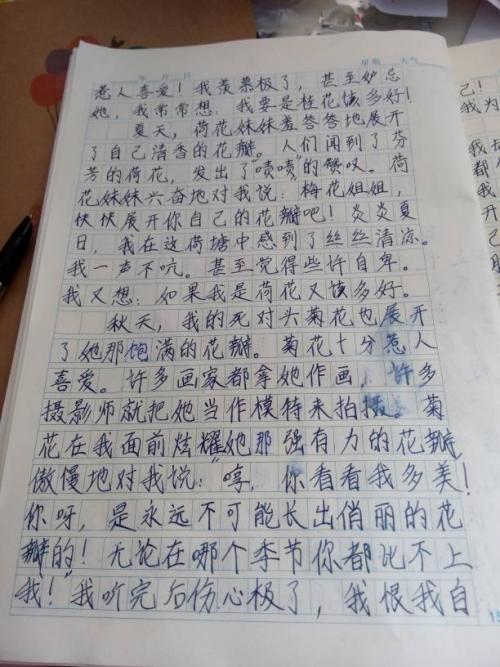 年 月 日 星期 天气
惹人喜爱！我羡慕极了，甚至妒忌
她，我常常想：我要是桂花该多好！
夏天，荷花妹妹羞答答地展开
了自己清香的花瓣。人们闻到了芬
芳的荷花，发出了“啧啧”的赞叹。荷
花妹妹兴奋地对我说：梅花姐姐，
快快展开你自己的花瓣吧！炎炎夏
日，我在这荷塘中感到了丝丝清凉。
我一声不吭。甚至觉得些许自卑。
我又想：如果我是荷花又该多好。
秋天，我的死对头菊花也展开
了她那饱满的花瓣。菊花十分惹人
喜爱。许多画家都拿她作画，许多
摄影师就把她当作模特来拍摄。菊
花在我面前炫耀她那强有力的花瓣，
傲慢地对我说：“哼，你看看我多美！
你呀，是永远不可能长出俏丽的花
瓣的！无论在哪个季节你都比不上
我！”我听完后伤心极了，我恨我自